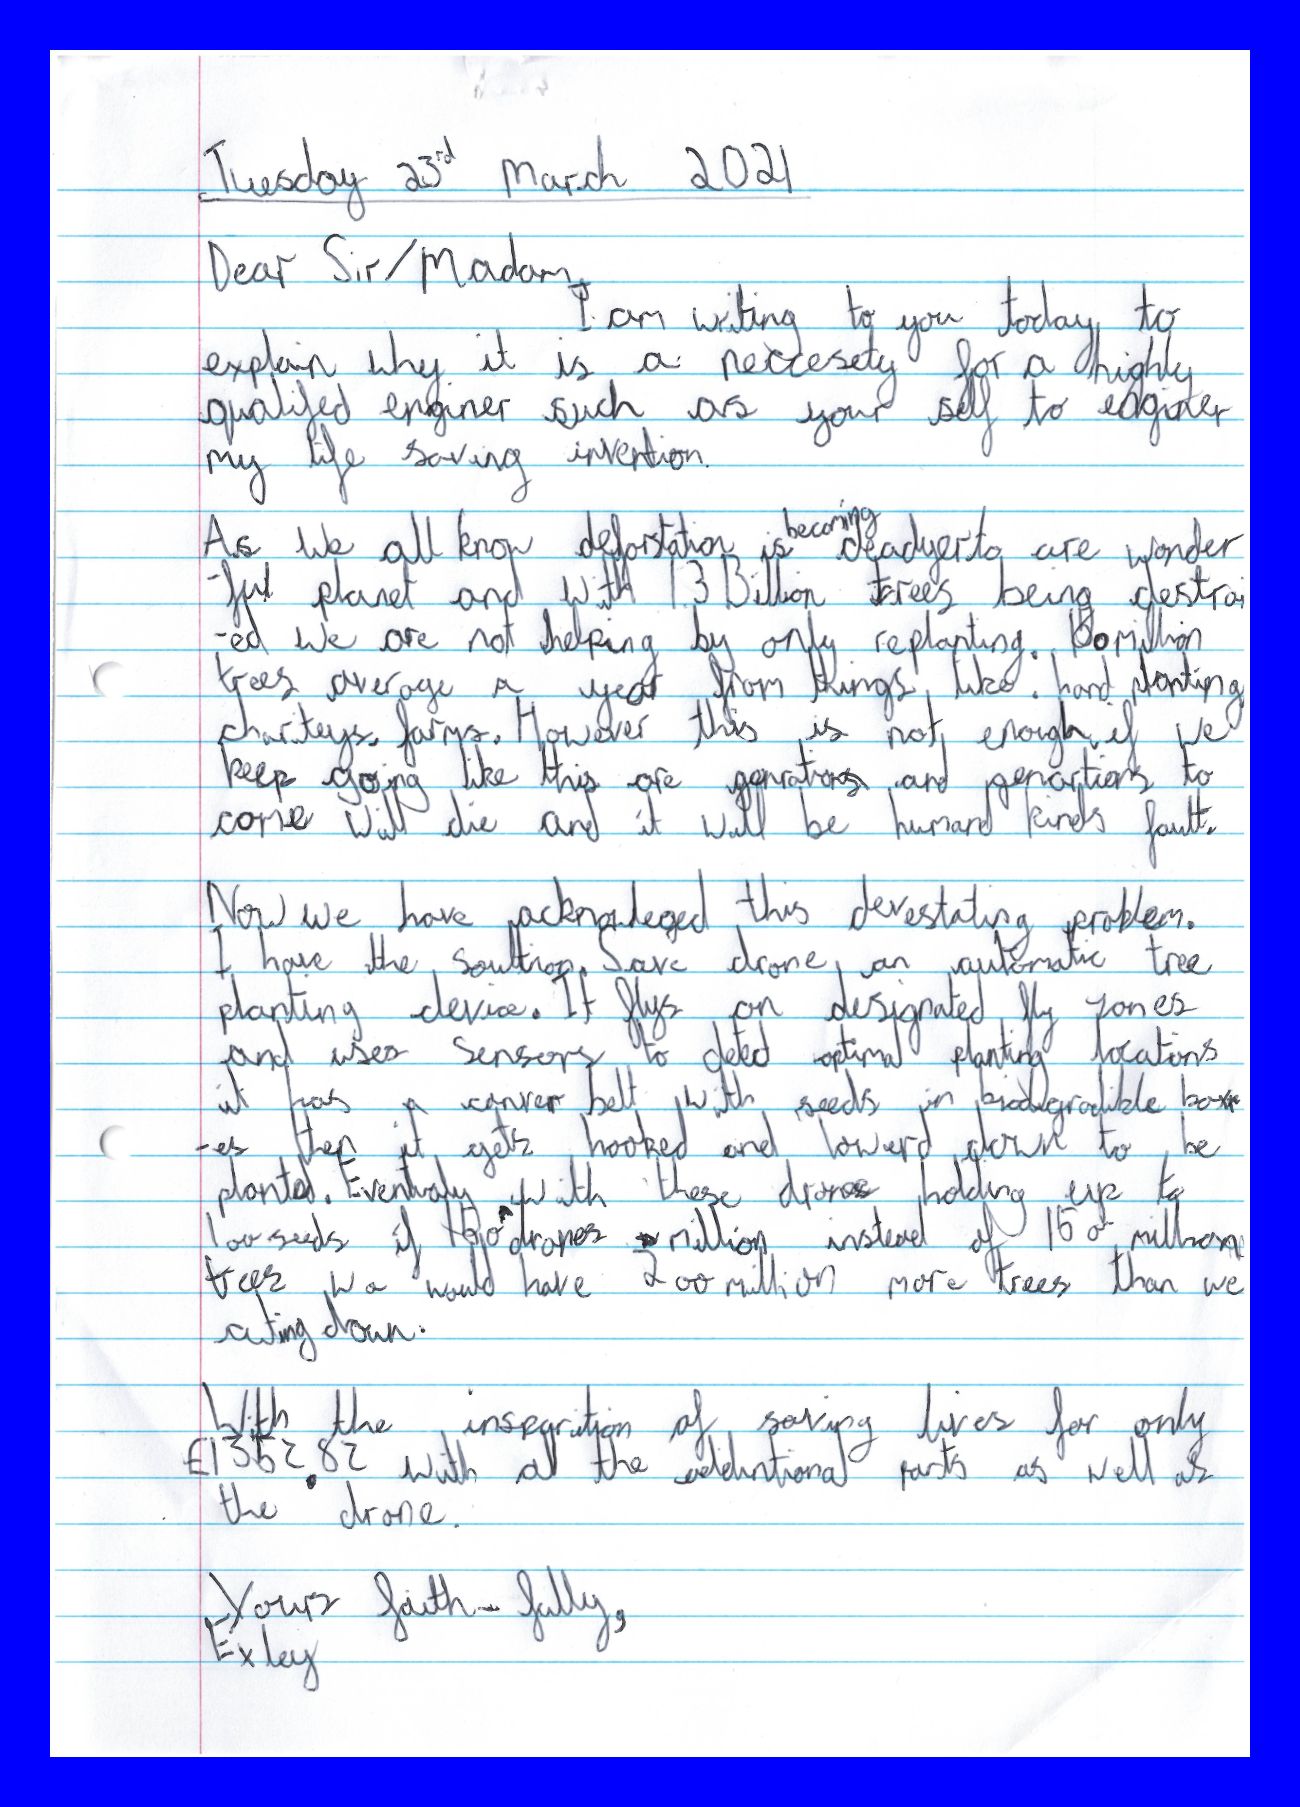 Tuesday 23rd March 2021
Dear Sir/Madam,
I am writing to you today, to
explain why it is a neccesety for a highly
qualifed enginer such as your self to enginer
my life saving invention.
As we all know deforstation is becoming deadyer to are wonder
-ful planet and with 1.3 Billion trees being destroi
-ed we are not helping by only replanting. 180 million
trees average a year from things like. hand planting
chariteys. farms. However this is not enough, if we
keep going like this are genrations and genartions to
come will die and it will be humand kinds fault.
Now we have acknowleged this devestating problem.
I have the soultion. Save drone, an automatic tree
planting device. It flys on designated fly zones
and uses sensors to deted optimal planting locations
it has a conver belt with seeds in biodigradible box
-es then it gets hooked and lowerd down to be
planted. Eventualy with these drones holding up to
100 seeds if drones million instead of 150 million
trees we would have 200 million more trees than we
cuting down.
With the inspqrition of saving lives for only
£1362.82 with al the addintional parts as well as
the drone.
Yours faith-fully,
Exley